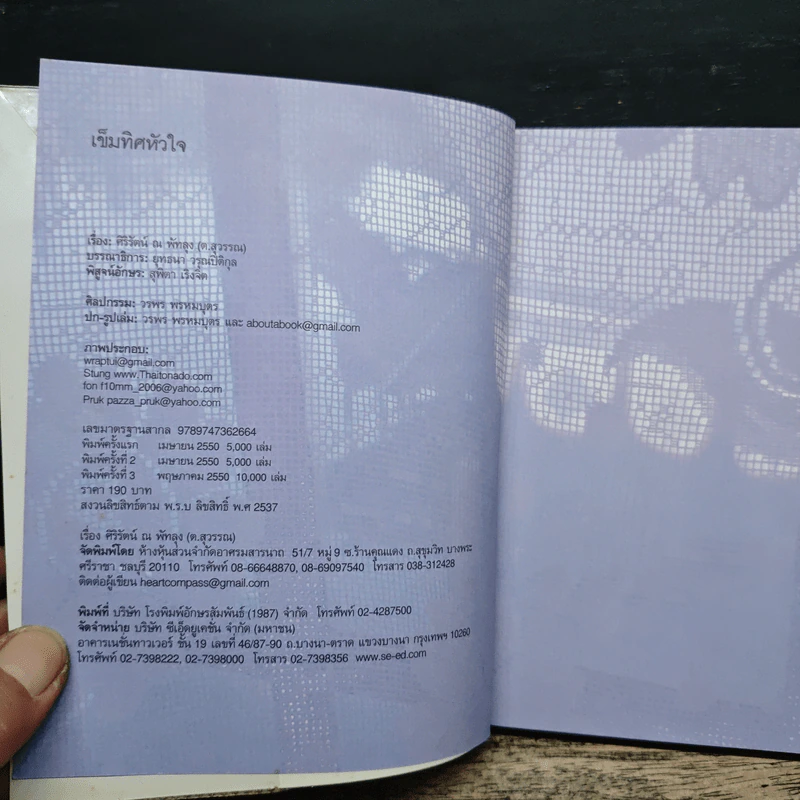 เข็มทิศหัวใจ
เรื่อง: ศิริรัตน์ ณ พัทลุง (ต.สุวรรณ)
บรรณาธิการ: ยุทธนา วรุณปิติกุล
พิสูจน์อักษร: สุพิตา เริงจิต
ศิลปกรรม: วรพร พรหมบุตร
ปก-รูปเล่ม: วรพร พรหมบุตร และ aboutabook@gmail.com
ภาพประกอบ:
wraptui@gmail.com
Stung www.Thaitonado.com
fon f10mm_2006@yahoo.com
Pruk pazza_pruk@yahoo.com
เลขมาตรฐานสากล 9789747362664
พิมพ์ครั้งแรก เมษายน 2550 5,000 เล่ม
พิมพ์ครั้งที่ 2 เมษายน 2550 5,000 เล่ม
พิมพ์ครั้งที่ 3 พฤษภาคม 2550 10,000 เล่ม
ราคา 190 บาท
สงวนลิขสิทธิ์ตาม พ.ร.บ ลิขสิทธิ์ พ.ศ 2537
เรื่อง ศิริรัตน์ ณ พัทลุง (ต.สุวรรณ)
จัดพิมพ์โดย ห้างหุ้นส่วนจำกัดอาศรมสารนาถ 51/7 หมู่ 9 ซ.ร้านคุณแดง ถ.สุขุมวิท บางพระ
ศรีราชา ชลบุรี 20110 โทรศัพท์ 08-66648870, 08-69097540 โทรสาร 038-312428
ติดต่อผู้เขียน heartcompass@gmail.com
พิมพ์ที่ บริษัท โรงพิมพ์อักษรสัมพันธ์ (1987) จำกัด โทรศัพท์ 02-4287500
จัดจำหน่าย บริษัท ซีเอ็ดยูเคชั่น จำกัด (มหาชน)
อาคารเนชั่นทาวเวอร์ ชั้น 19 เลขที่ 46/87-90 ถ.บางนา-ตราด แขวงบางนา กรุงเทพฯ 10260
โทรศัพท์ 02-7398222, 02-7398000 โทรสาร 02-7398356 www.se-ed.com